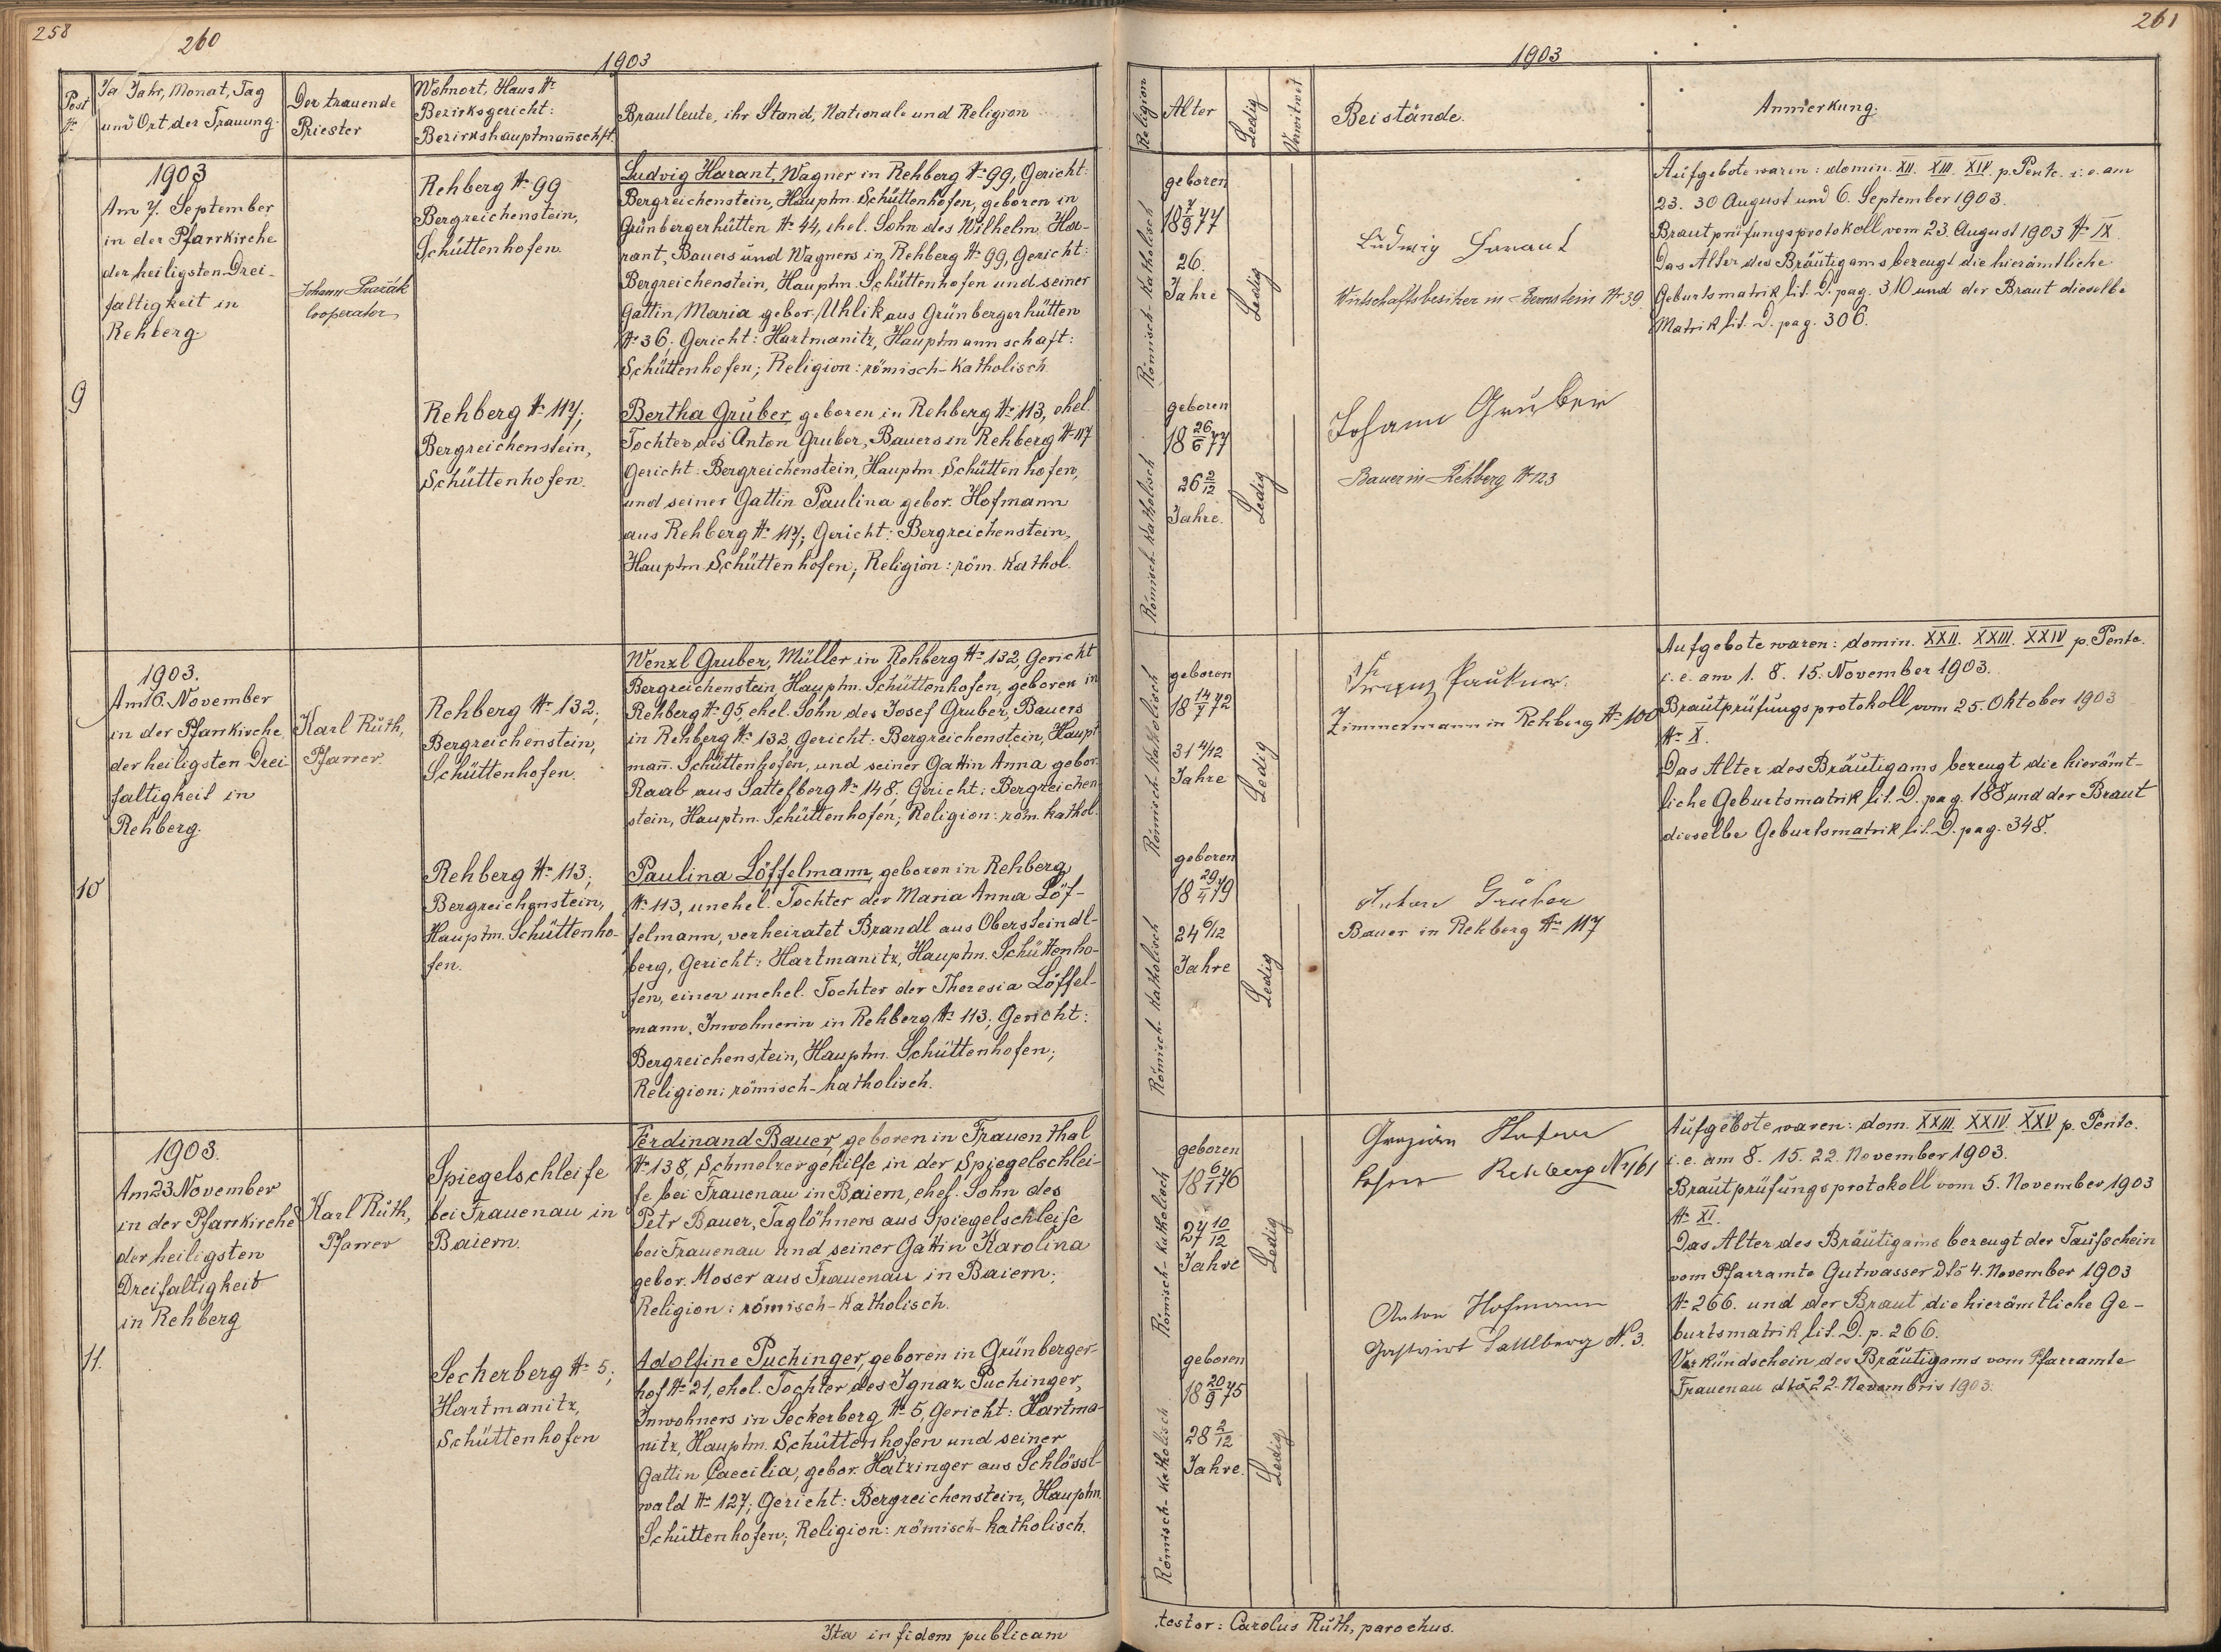 258
260
1903
Post Nr.
Ja Jahr, Monat, Tag
und Ort der Trauung.
Der trauende
Priester
Wohnort, Haus Nr.
Bezirksgericht:
Bezirkshauptmañschft.
Brautleute, ihr Stand, Nationale und Religion
9
1903
Am 7. September
in der Pfarrkirche
der heiligsten Drei-
faltigkeit in
Rehberg.
Johann
Cooperator
Rehberg Nr. 99
Bergreichenstein,
Schüttenhofen.
Ludvig Harant, Wagner in Rehberg Nr. 99, Gericht:
Bergreichenstein, Hauptm. Schüttenhofen, geboren in
Grünbergerhütten Nr. 44, ehel. Sohn des Wilhelm Ha-
rant, Bauers und Wagners in Rehberg Nr. 99, Gericht:
Bergreichenstein, Hauptm. Schüttenhofen und seiner
Gattin Maria gebor. Uhlik aus Grünbergerhütten
Nr. 36. Gericht: Hartmanitz, Hauptmannschaft:
Schüttenhofen; Religion: römisch-katholisch.
Rehberg Nr. 117;
Bergreichenstein,
Schüttenhofen.
Bertha Gruber, geboren in Rehberg Nr. 113, ehel.
Tochter des Anton Gruber, Bauers in Rehberg Nr. 117
Gericht: Bergreichenstein, Hauptm. Schüttenhofen,
und seiner Gattin Paulina gebor. Hofmann
aus Rehberg Nr. 117; Gericht: Bergreichenstein,
Hauptm. Schüttenhofen; Religion: röm. kathol.
10
1903.
Am 16. November
in der Pfarrkirche
der heiligsten Drei-
faltigkeit in
Rehberg.
Karl Rüth,
Pfarrer.
Rehberg Nr. 132;
Bergreichenstein,
Schüttenhofen.
Wenzl Gruber, Müller in Rehberg Nr. 132, Gericht
Bergreichenstein, Hauptm. Schüttenhofen, geboren in
Rehberg Nr. 95, ehel. Sohn des Josef Gruber, Bauers
in Rehberg Nr. 132, Gericht: Bergreichenstein, Haupt
mañ. Schüttenhofen, und seiner Gattin Anna gebor.
Raab aus Sattelberg Nr. 148. Gericht: Bergreichen
stein, Hauptm. Schüttenhofen; Religion: röm. kathol.
Rehberg Nr. 113;
Bergreichenstein,
Hauptm. Schüttenho-
fen.
Paulina Löffelmann, geboren in Rehberg
Nr. 113, unehel. Tochter der Maria Anna Löf-
felmann, verheiratet Brandl aus Obersteindl-
berg, Gericht: Hartmanitz, Hauptm. Schüttenho-
fen, einer unehel. Tochter der Theresia Löffel-
mann, Inwohnerin in Rehberg Nr. 113; Gericht:
Bergreichenstein, Hauptm. Schüttenhofen;
Religion: römisch-katholisch.
11.
1903.
Am 23 November
in der Pfarrkirche
der heiligsten
Dreifaltigkeit
in Rehberg
Karl Rüth,
Pfarrer
Spiegelschleife
bei Frauenau in
Baiern.
Ferdinand Bauer, geboren in Frauenthal
Nr. 138, Schmelzergehilfe in der Spiegelschlei-
fe bei Frauenau in Baiern, ehel. Sohn des
Petr Bauer, Taglöhners aus Spiegelschleife
bei Frauenau und seiner Gattin Karolina
gebor. Moser aus Frauenau in Baiern;
Religion: römisch-katholisch.
Seckerberg Nr. 5;
Hartmanitz,
Schüttenhofen
Adolfine Puchinger, geboren in Grünberger-
hof Nr. 21, ehel. Tochter des Ignaz Puchinger,
Inwohners in Seckerberg Nr. 5, Gericht: Hartma-
nitz, Hauptm. Schüttenhofen und seiner
Gattin Caecilia, gebor. Hatzinger aus Schlössl-
wald Nr. 127; Gericht: Bergreichenstein, Hauptm.
Schüttenhofen; Religion: römisch-katholisch.
Ita in fidem publicam
261
1903
Religion
Alter
Ledig
Verwitwet
Beistände.
Anmerkung.
Römisch-katholisch
geboren
18 7/9 77
26.
Jahre
Ledig
Ludwig Harant
Wirtschaftsbesitzer in Nr. 39
Aufgebote waren: domin. XII. XIII. XIV. p. Pente. i. e. am
23. 30 August und 6. September 1903.
Brautprüfungsprotokoll vom 23. August 1903 Nr. IX
Das Alter des Bräutigams bezeugt die hierämtliche
Geburtsmatrik lit. D. pag. 310 und der Braut dieselbe
Matrik lit. D. pag. 306.
Römisch-katholisch
geboren
18 26/6 77
26 2/12
Jahre.
Ledig
Johann Gruber
Bauer in Rehberg Nr. 123
Römisch-katholisch
geboren
18 14/7 72
31 4/12
Jahre
Ledig
Franz Paukner.
Zimmermann in Rehberg Nr. 100
Aufgebote waren: domin. XXII. XXIII. XXIV p. Pente.
i. e. am 1. 8. 15. November 1903.
Brautprüfungsprotokoll vom 25. Oktober 1903
Nr. X.
Das Alter des Bräutigams bezeugt die hierämt-
liche Geburtsmatrik lit. D. pag. 188 und der Braut
dieselbe Geburtsmatrik lit. D. pag. 348.
Römisch-katholisch
geboren
18 29/4 79
24 6/12
Jahre
Ledig
Anton Gruber
Bauer in Rehberg Nr. 117
Römisch-katholisch
geboren
18 6/1 76
27 10/12
Jahre
Ledig
Rehberg N 161
Aufgebote waren: dom. XXIII. XXIV. XXV p. Pente.
i. e. am 8. 15. 22. November 1903.
Brautprüfungsprotokoll vom 5. November 1903
Nr. XI.
Das Alter des Bräutigams bezeugt der Taufschein
vom Pfarramte Gutwasser dto 4. November 1903
Nr. 266. und der Braut die hierämtliche Ge-
burtsmatrik lit. D. p. 266.
Verkündschein des Bräutigams vom Pfarramte
Frauenau dto 22. Novembris 1903.
Römisch-katholisch
geboren
18 20/9 75
28 2/12
Jahre.
Ledig
Anton Hofmann
Gastwirt Sattlberg N. 3.
testor: Carolus Rüth, parochus.